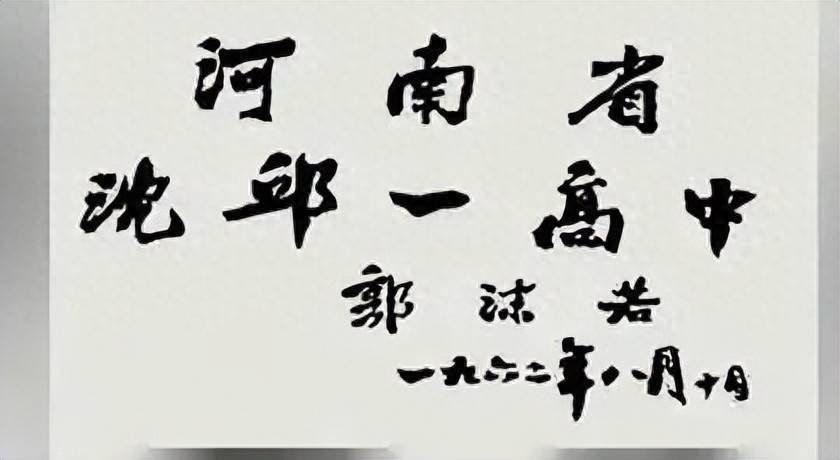 河南省
沈邱一高中
郭沫若
一九六二年八月十日